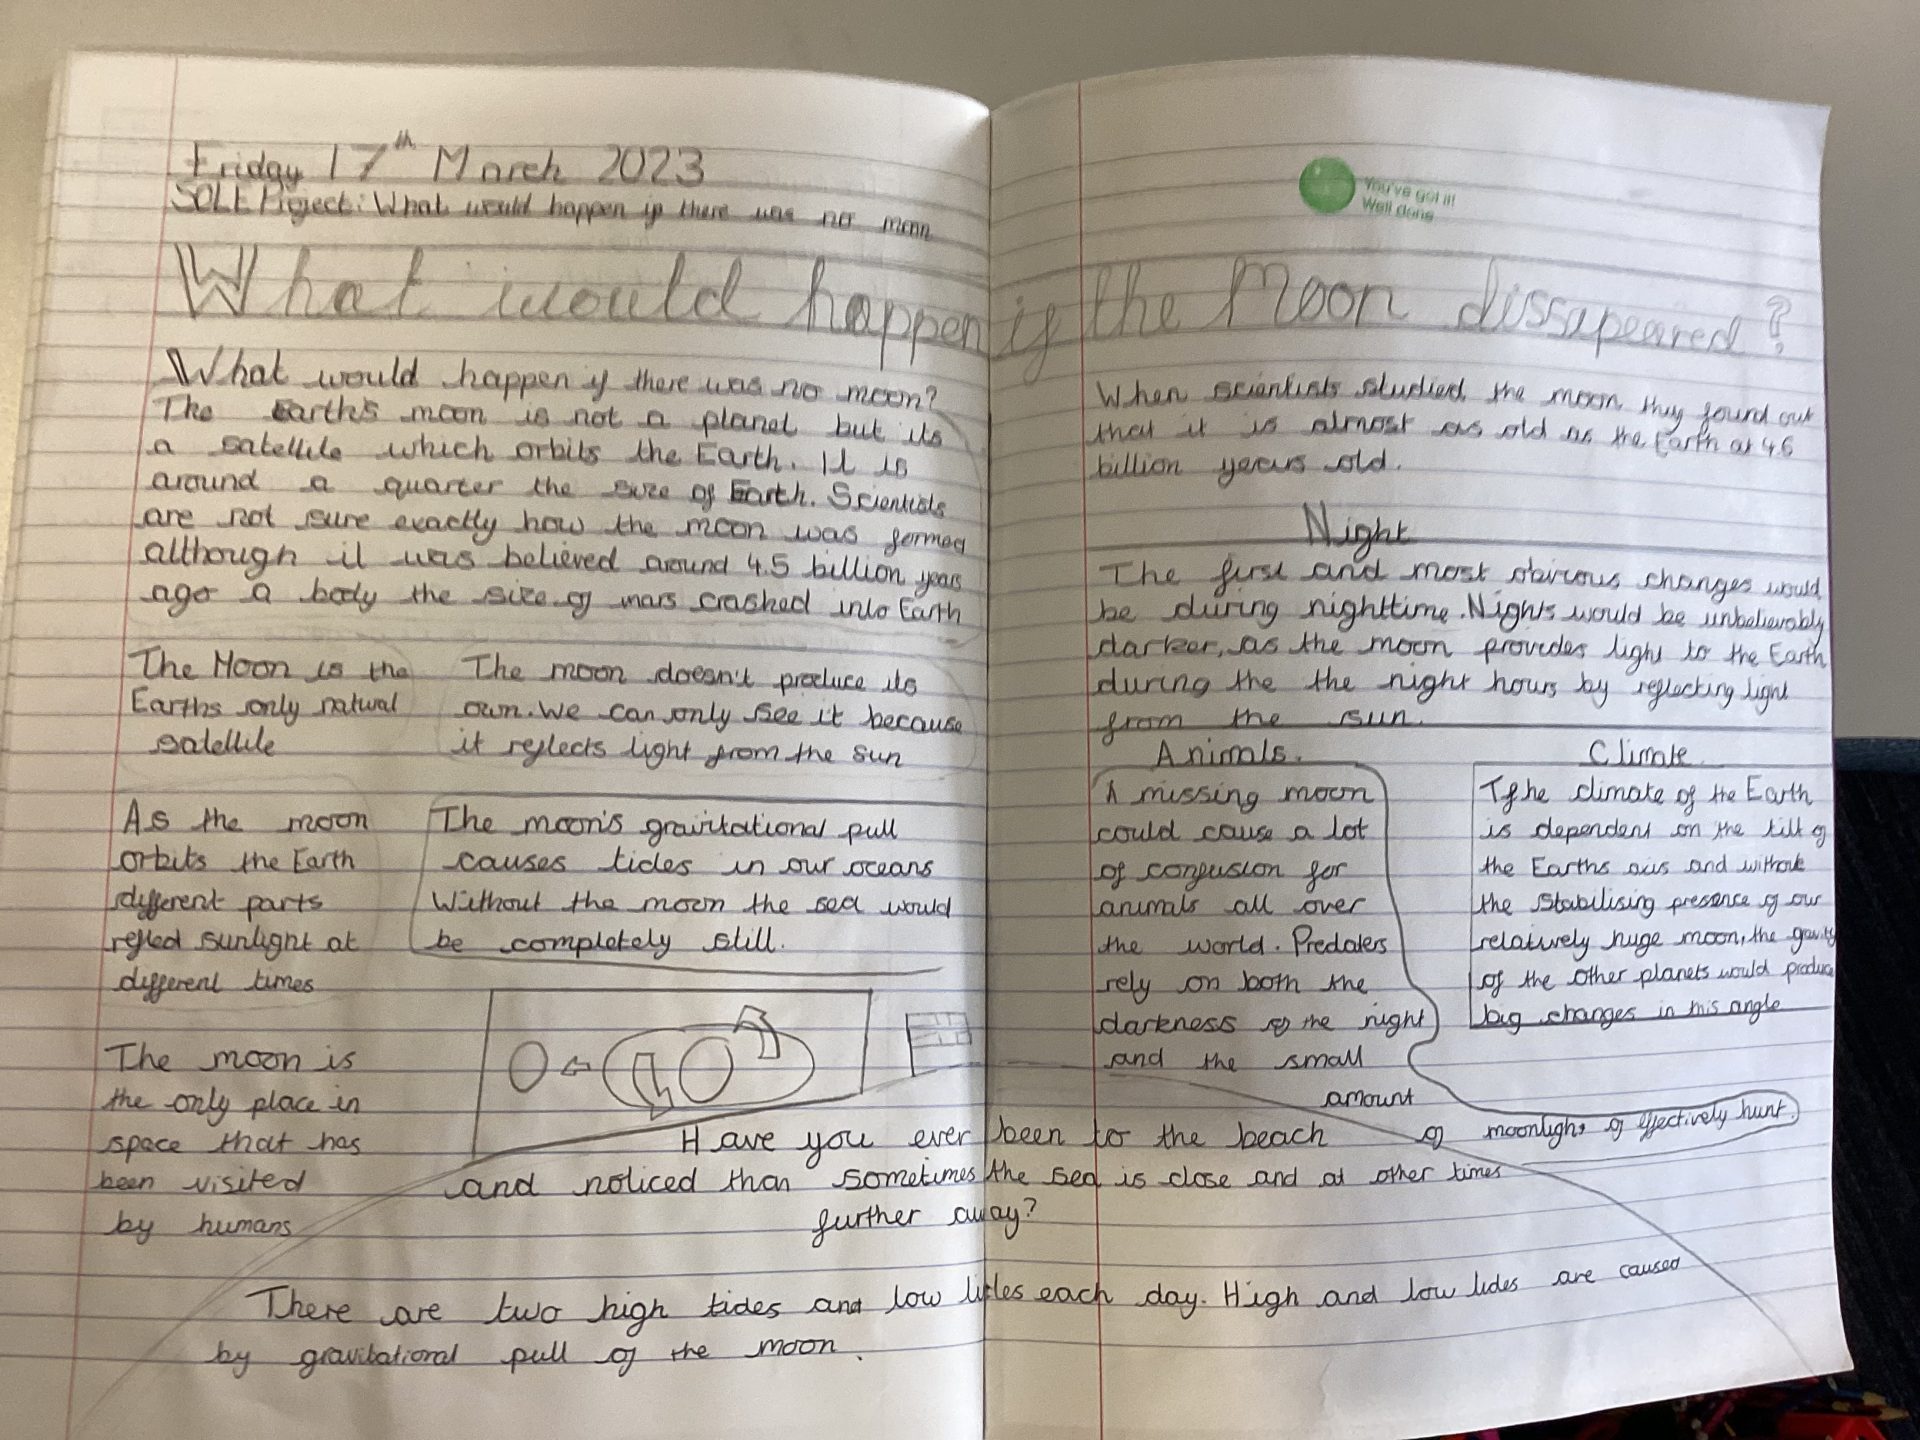 Friday 17th March 2023
SOLE Project: What would happen if there was no moon
What would happen if the Moon dissapeared?
What would happen if there was no moon?
The Earth's moon is not a planet but its
a satellite which orbits the Earth. It is
around a quarter the size of Earth. Scientists
are not sure exactly how the moon was formed
although it was believed around 4.5 billion years
ago a body the size of mars crashed into Earth
The Moon is the
Earths only natural
satellite
The moon doesn't produce its
own. We can only see it because
it reflects light from the sun
As the moon
orbits the Earth
different parts
reflect sunlight at
different times
The moon's gravitational pull
causes tides in our oceans
Without the moon the sea would
be completely still.
The moon is
the only place in
space that has
been visited
by humans
You've got it!
Well done
When scientists studied the moon they found out
that it is almost as old as the Earth at 4.6
billion years old.
Night
The first and most obvious changes would
be during nighttime. Nights would be unbelievably
darker, as the moon provides light to the Earth
during the the night hours by reflecting light
from the sun.
Animals.
A missing moon
could cause a lot
of confusion for
animals all over
the world. Predators
rely on both the
darkness of the night
and the small
amount
of moonlight of effectively hunt.
Climate
Tfhe climate of the Earth
is dependent on the tilt of
the Earths axis and without
the stabilising presence of our
relatively huge moon, the gravity
of the other planets would produce
big changes in this angle
Have you ever been to the beach
and noticed than sometimes the sea is close and at other times
further away?
There are two high tides and low tides each day. High and low tides are caused
by gravitational pull of the moon.